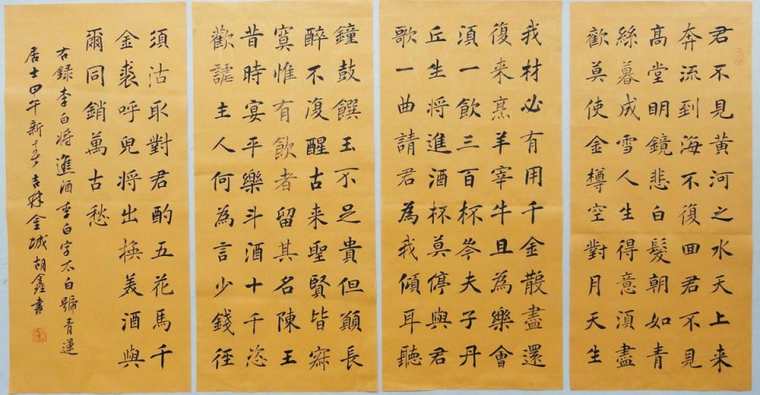 君不見黃河之水天上来
奔流到海不復回君不見
高堂明鏡悲白髮朝如青
絲暮成雪人生得意須盡
歡莫使金樽空對月天生
我材必有用千金散盡還
復来烹羊宰牛且為樂會
須一飲三百杯岑夫子丹
丘生將進酒杯莫停與君
歌一曲請君為我傾耳聽
鐘鼓饌玉不足貴但願長
醉不復醒古来聖賢皆寂
寞惟有飲者留其名陳王
昔時宴平樂斗酒十千恣
歡謔主人何為言少錢徑
須沽取對君酌五花馬千
金裘呼兒將出換美酒與
爾同銷萬古愁
右錄李白將進酒李白字太白號青蓮
居士 午新 吉林金城胡鑫書